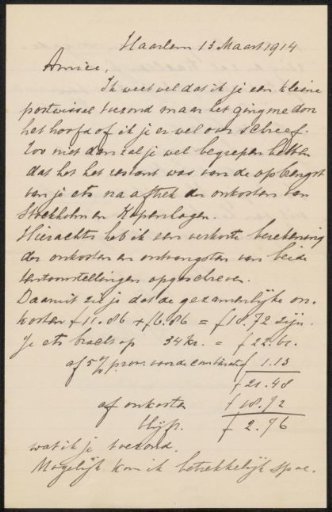 Haarlem 13 Maart 1914
Amice,
Ik weet wel dat ik je een kleine
postwissel toezond maar het ging me door
het hoofd of ik je er wel over schreef.
Zoo niet dan zal je wel begrepen hebben
dat het het restant was van de opbrengst
van je ets na aftrek der onkosten van
Stockholm en Kopenhagen.
Hierachter heb ik een verkorte berekening
der onkosten en ontvangsten van beide
tentoonstellingen opgeschreven.
Daaruit zie je dat de gezamenlijke on-
kosten f 11.86 + f 6.86 = f 18.72 zijn.
Je ets bracht op 34 Kr. = f 22.61
af 5% prov. voor de f 1.13
f 21.48
af onkosten f 18.72
blijft f 2.76
wat ik je toezond.
Mogelijk kon ik betrekkelijk